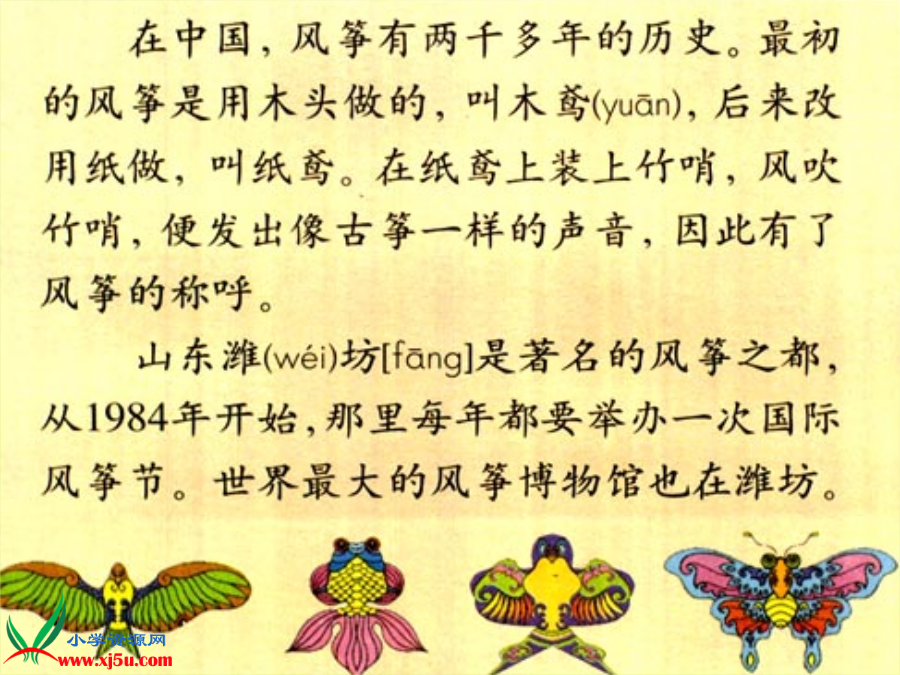 在中国，风筝有两千多年的历史。最初
的风筝是用木头做的，叫木鸢(yuān)，后来改
用纸做，叫纸鸢。在纸鸢上装上竹哨，风吹
竹哨，便发出像古筝一样的声音，因此有了
风筝的称呼。
山东潍(wéi)坊[fāng]是著名的风筝之都，
从1984年开始，那里每年都要举办一次国际
风筝节。世界最大的风筝博物馆也在潍坊。
小学资源网
www.xj5u.com